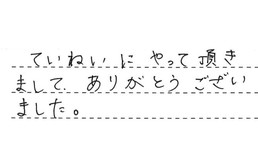 ていねいに やって頂き
まして、ありがとうござい
ました。